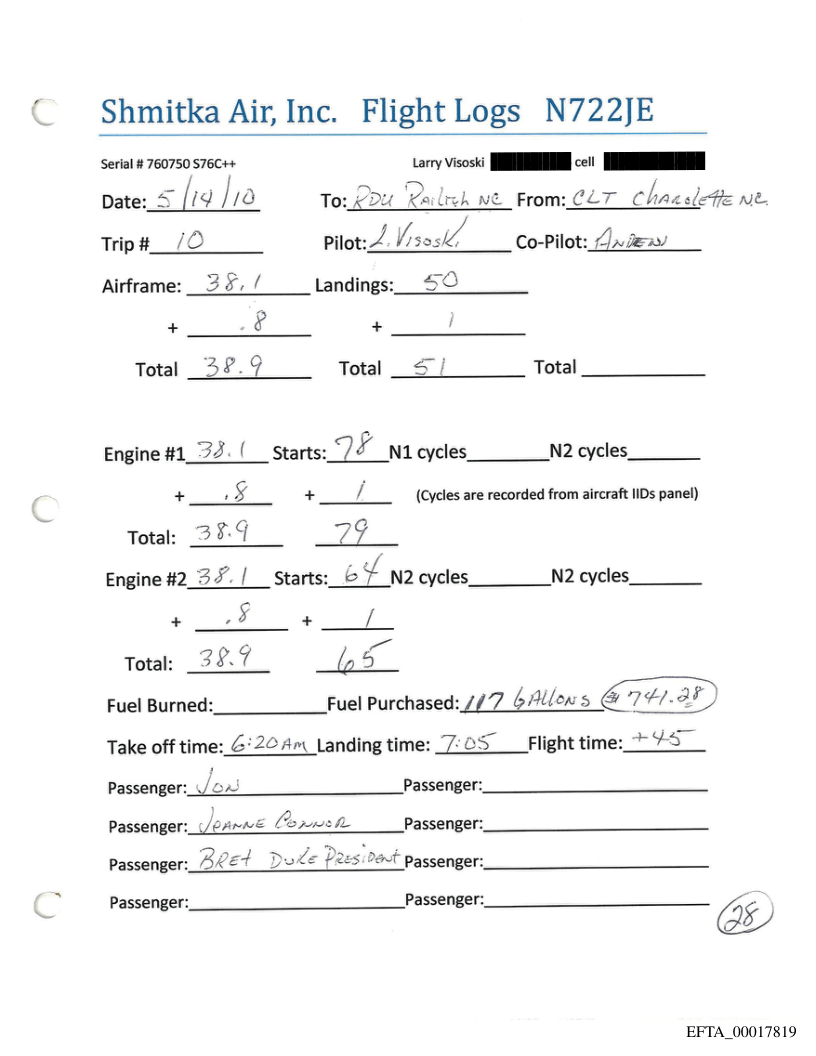 Shmitka Air, Inc. Flight Logs N722JE
Serial # 760750 S76C++ Larry Visoski cell
Date: 5/14/10 To: RDU Railieh NC From: CLT Charolette N.C.
Trip # 10 Pilot: L. Visoski Co-Pilot: Andrew
Airframe: 38.1 Landings: 50
+ .8 + 1
Total 38.9 Total 51 Total
Engine #1 38.1 Starts: 78 N1 cycles N2 cycles
+ .8 + 1 (Cycles are recorded from aircraft IIDs panel)
Total: 38.9 79
Engine #2 38.1 Starts: 64 N2 cycles N2 cycles
+ .8 + 1
Total: 38.9 65
Fuel Burned: Fuel Purchased: 117 GAllons $ 741.28
Take off time: 6:20 AM Landing time: 7:05 Flight time: +45
Passenger: Jon Passenger:
Passenger: Joanne Connor Passenger:
Passenger: BREt Duke President Passenger:
Passenger: Passenger:
28
EFTA_00017819